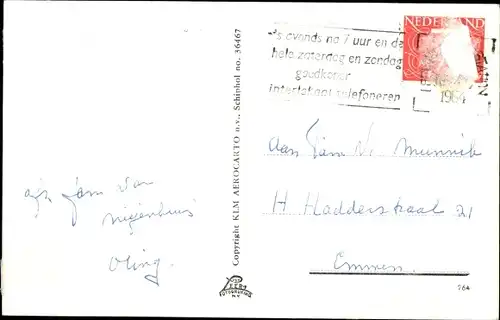 NEDERLAND
's avonds na 7 uur en de
hele zaterdag en zondag
goedkoper
interlokaal telefoneren
1964
Aan Fam V. Munnik
H Hadderstraat 21
Emmen
afz fam van
Oling.
Copyright KLM AEROCARTO n.v., Schiphol no. 36467
764